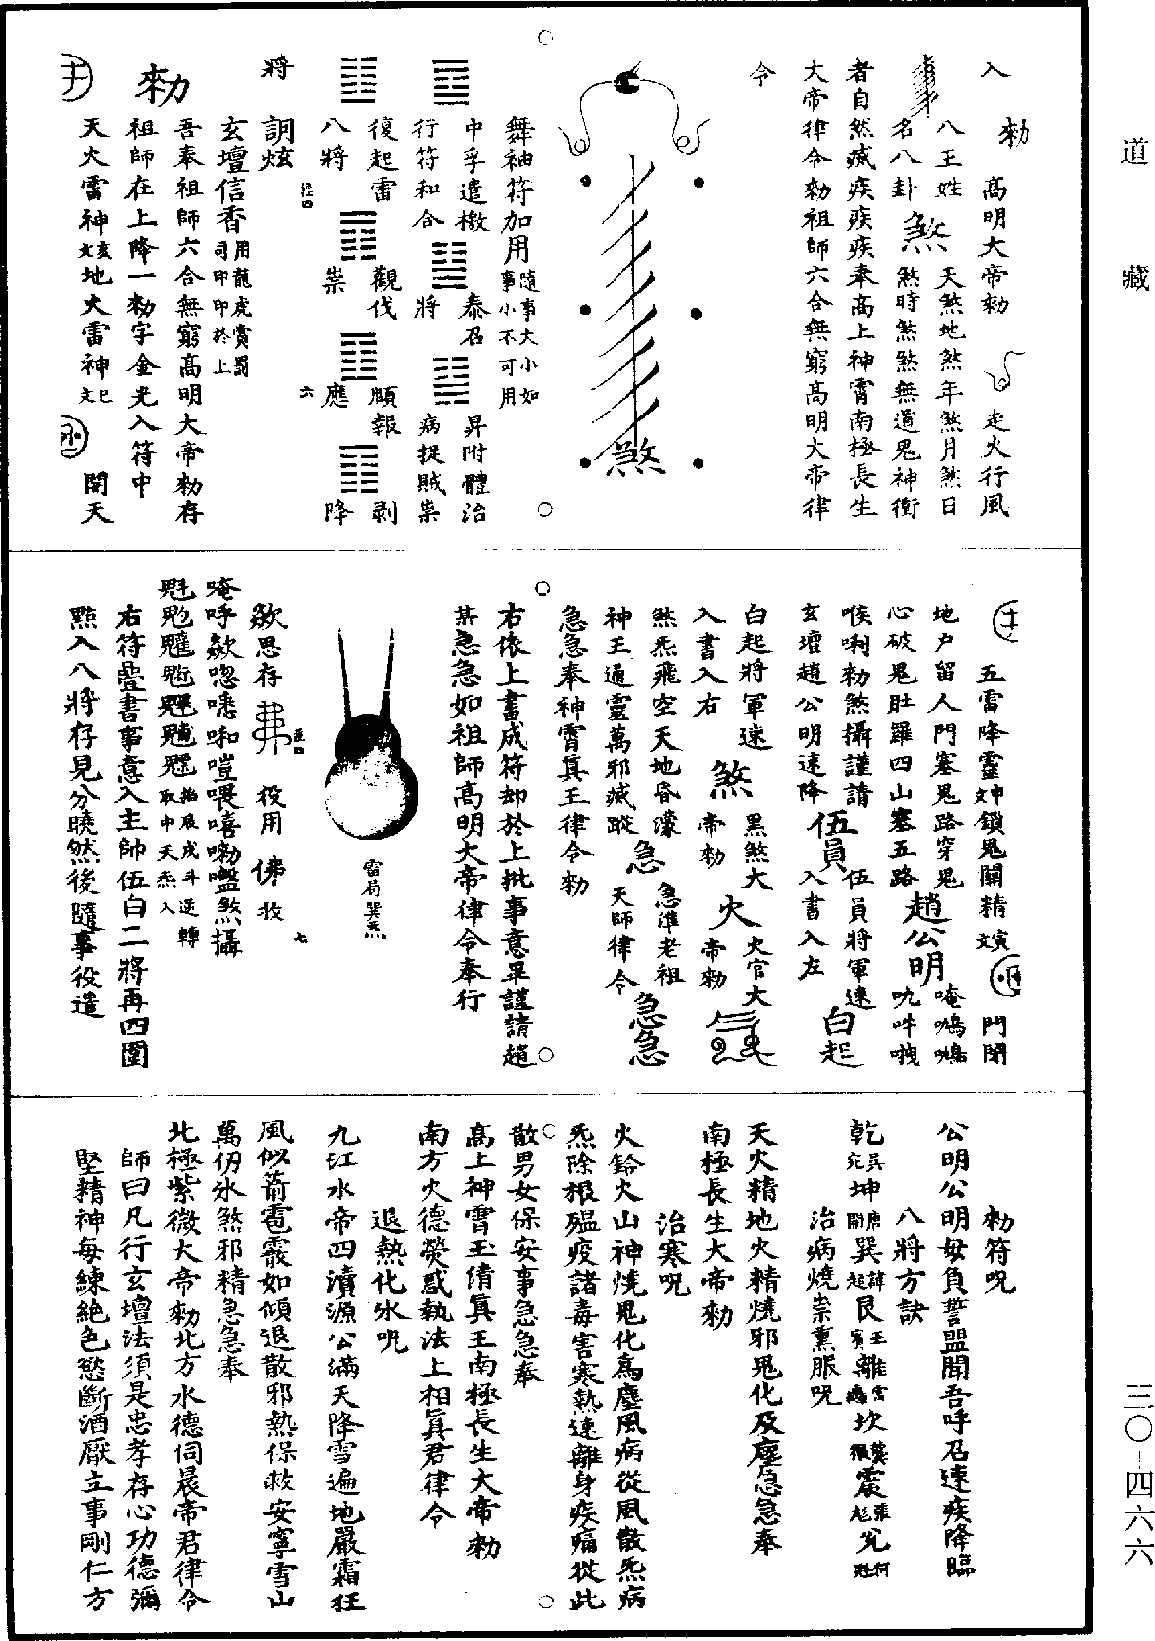 道藏
勑
入
高明大帝勑
走火行風
八王姓
名八卦
煞
天煞地煞年煞月煞日
煞時煞煞無道鬼神衛
者自然滅疾疾疾奉高上神霄南極長生
大帝律令勑祖師六合無窮高明大帝律
令
煞
舞袖符加用
隨事大小如
事小不可用
中孚遣檄
行符和合
泰召
將
昇附體治
病捉賊祟
復起雷
八將
觀伐
祟
頤報
應
剝
降
六
將
詷炫
玄壇信香
用龍虎賞罰
司印印於上
吾奉祖師六合無窮高明大帝勑存
祖師在上降一勑字金光入符中
勑
天火雷神
地火雷神
開天
五雷降靈
鎖鬼關精
門閉
地戶留人門塞鬼路穿鬼
心破鬼肚羅四山塞五路
趙公明
喉唎勑煞攝謹請
玄壇趙公明速降
伍員
伍員將軍速
入書入左
白起
白起將軍速
入書入右
煞
黑煞大
帝勑
火
火官大
帝勑
煞炁飛空天地昏濛
神王通靈萬邪滅蹤
急
急準老祖
天師律令
急急
急急奉神霄真王律令勑
右依上書成符却於上批事意畢謹請趙
某急急如祖師高明大帝律令奉行
雷局巽炁
七
欻思存
役用
佛收
取中天炁入
右符疊書事意入主帥伍白二將再四圍
點入八將存見分曉然後隨事役遣
勑符呪
公明公明毋負誓盟聞吾呼召速疾降臨
八將方訣
乾
坤
巽
艮
離
坎
震
兌
治病燒祟熏服呪
天火精地火精燒邪鬼化及塵急急奉
南極長生大帝勑
治寒呪
火鈴火山神燒鬼化為塵風病從風散炁病
炁除根瘟疫諸毒害寒熱速離身疾痛從此
散男女保安寧急急奉
高上神霄玉清真王南極長生大帝勑
南方火德熒惑執法上相真君律令
退熱化水呪
九江水帝四瀆源公滿天降雪遍地嚴霜狂
風似箭雹霰如傾退散邪熱保救安寧雪山
萬仞氷煞邪精急急奉
北極紫微大帝勑北方水德伺晨帝君律令
師曰凡行玄壇法須是忠孝存心功德彌
堅精神每練絕色慾斷酒厭立事剛仁方
三〇-四六六